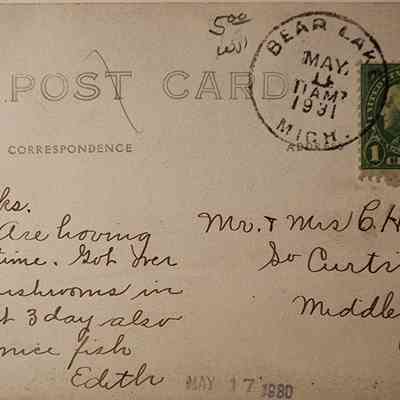 5.00
POST CARD
BEAR LAK
MAY
11 AM
1931
MICH.
CORRESPONDENCE
ADDRESS
1
ks.
Are having
time. Got over
mushrooms in
t 3 day also
nice fish
Edith
Mr. + Mrs C. H
So Curti
Middle
MAY 17 1980